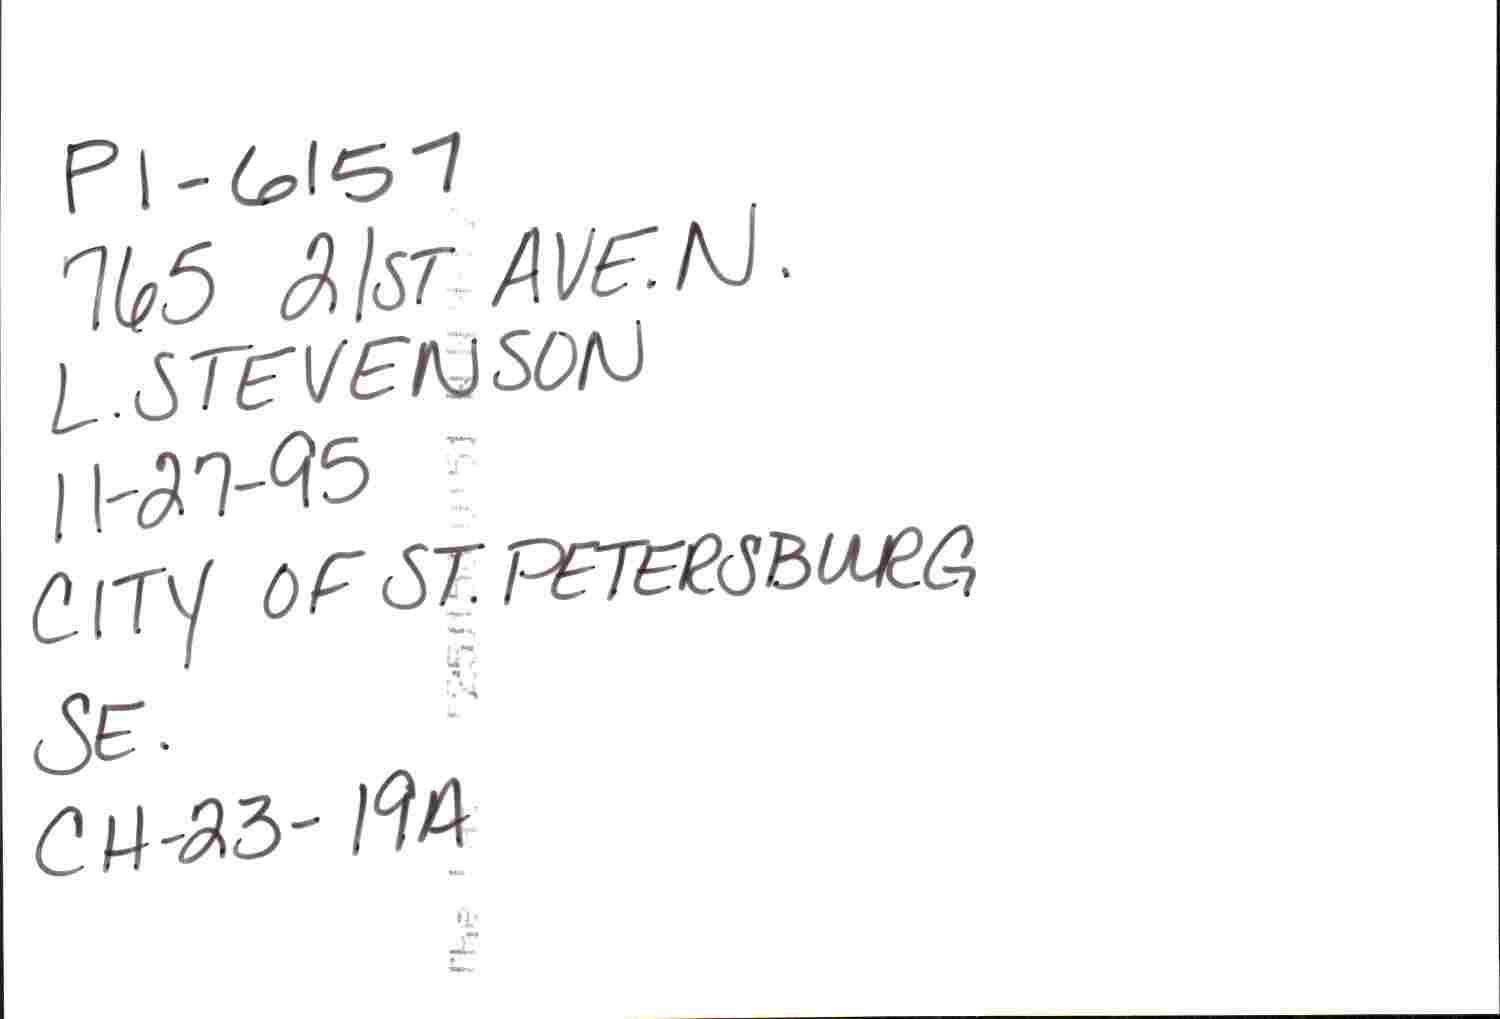 PI-6157
765 21ST AVE. N.
L. STEVENSON
11-27-95
CITY OF ST. PETERSBURG
SE.
CH-23-19A